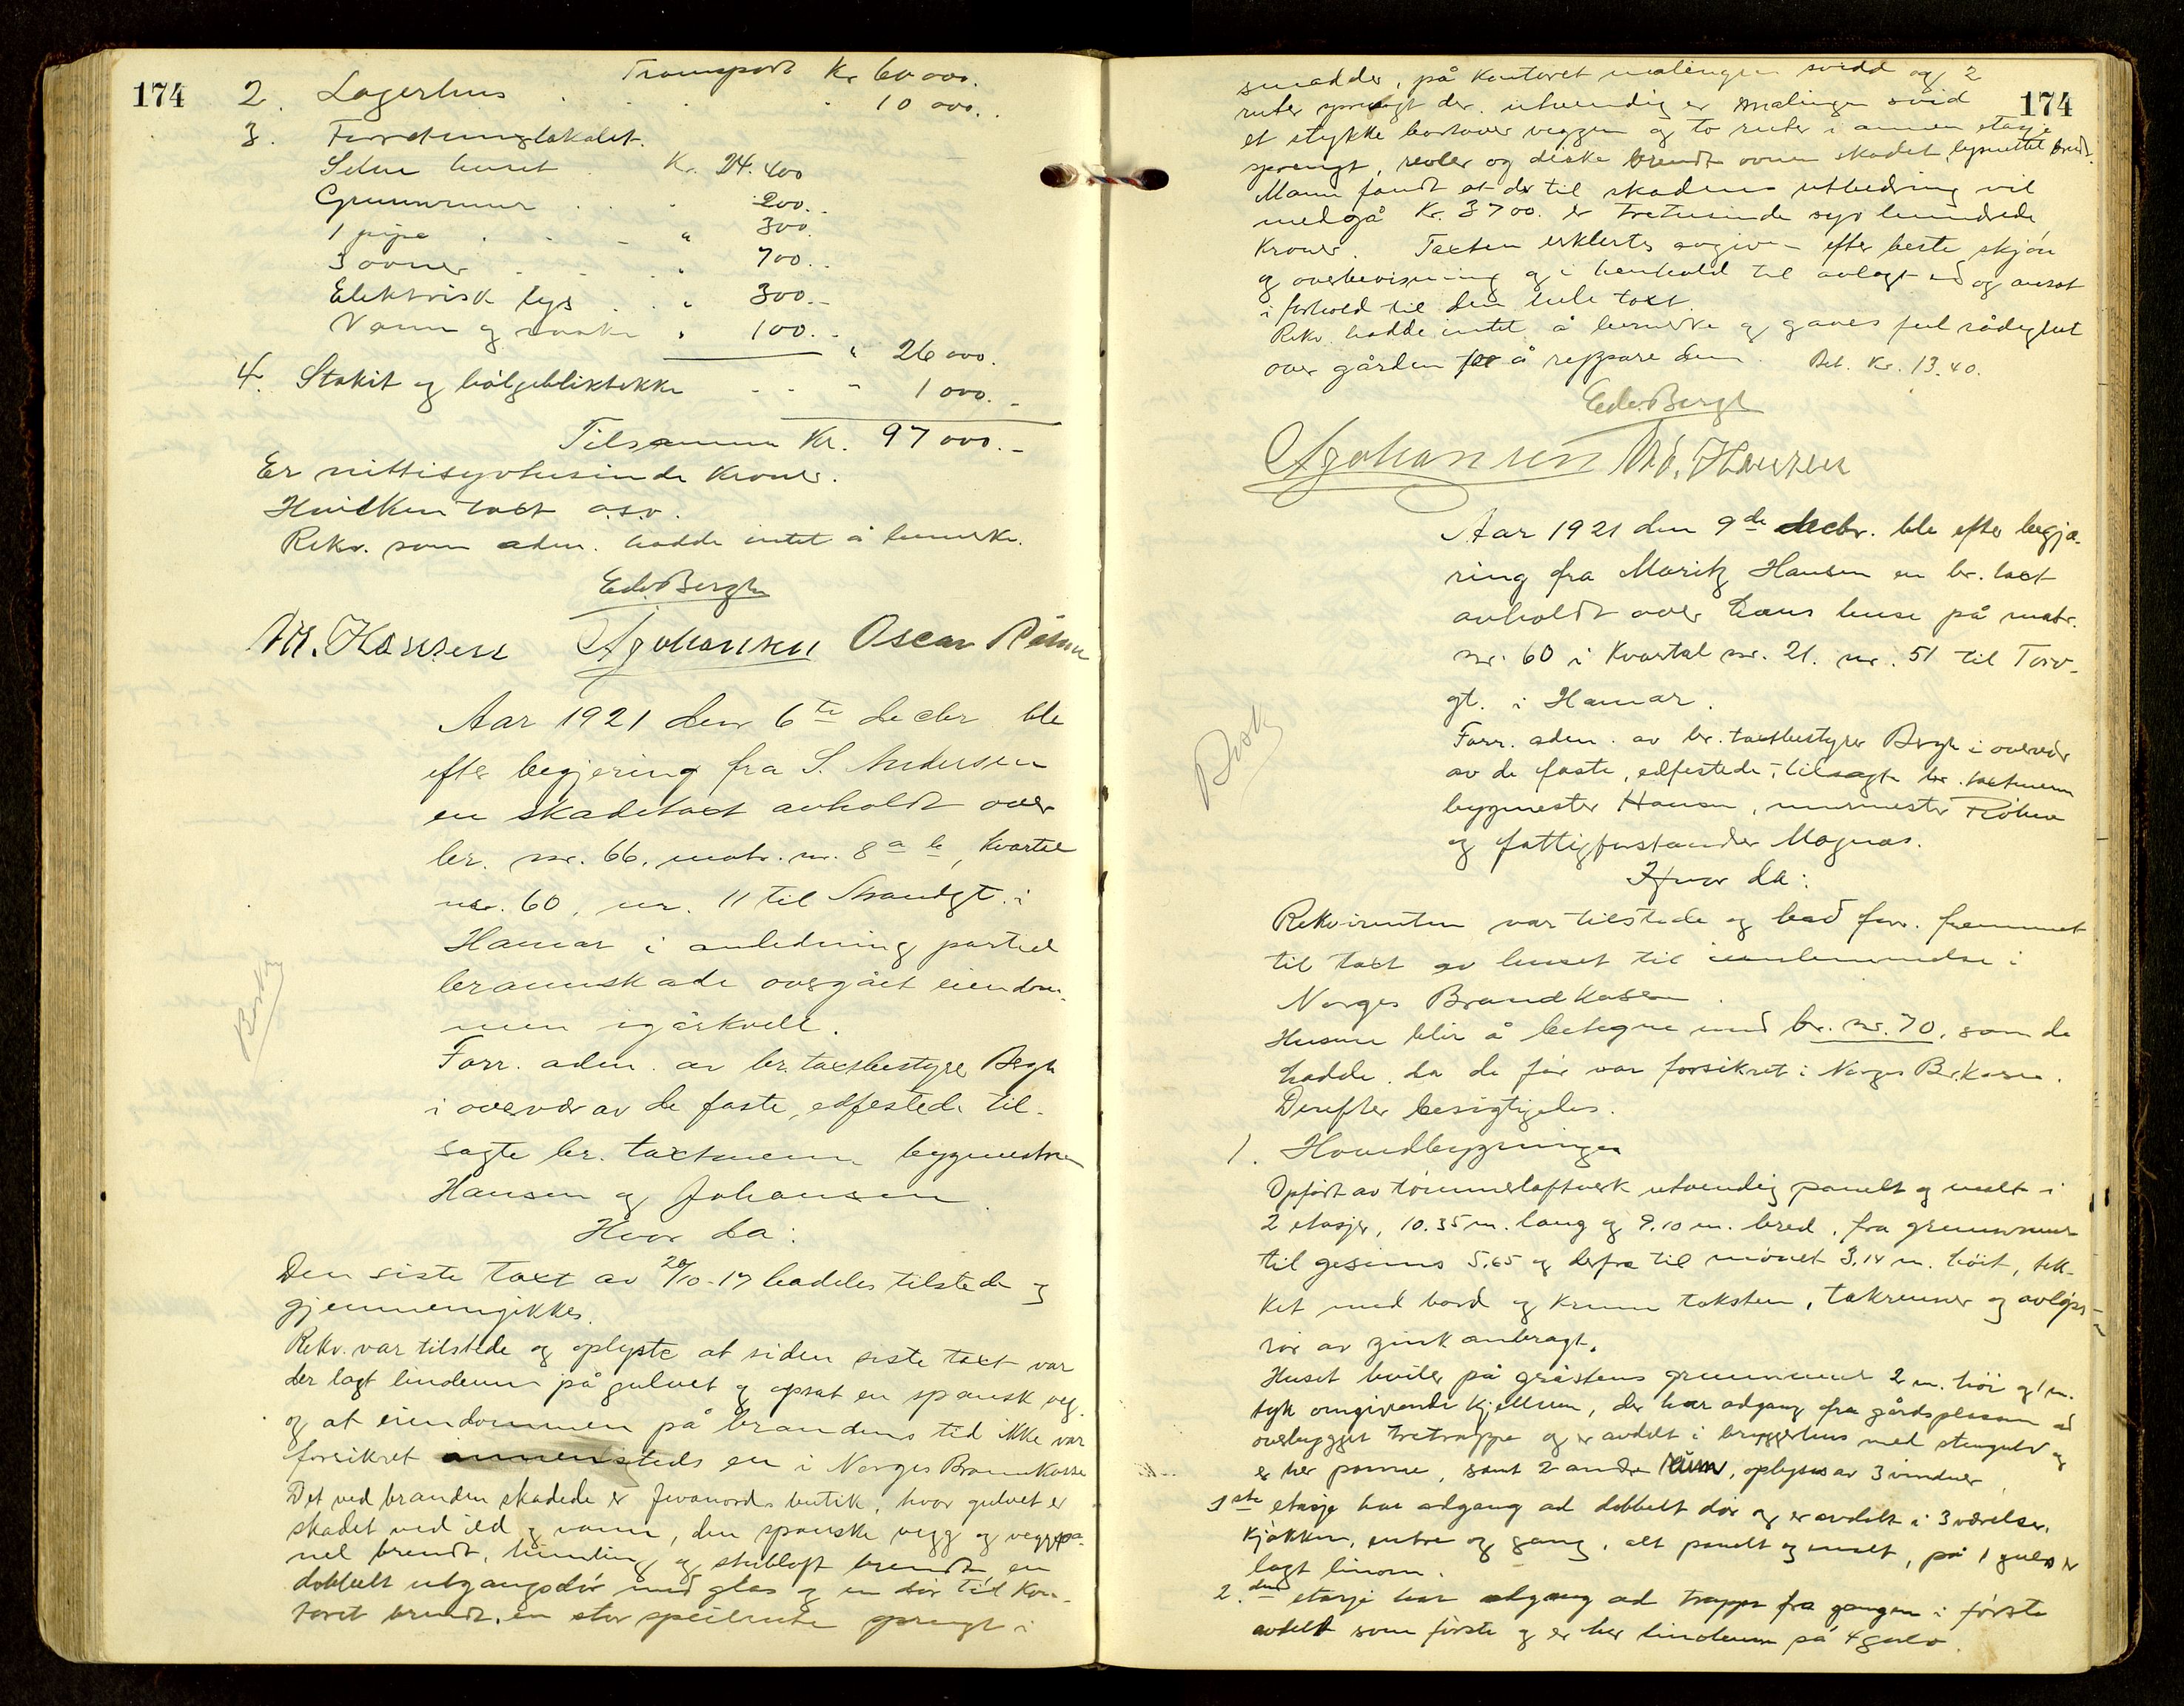 174
Transport Kr. 60 000.
2. Lagerhus . . . . 10 000.
3. Forretningslokalet.
Selve huset . Kr. 24.400
Grunnmur . . . 200.-
1 pipe . . - " 300.
3 ovner . . . " 700.-
Elektrisk lys . . " 300.-
Vann og vask " 100.-
" 26 000.
4. Stakit og bølgebliktekke . . - 1 000.-
Tilsammen Kr. 97 000.-
Er nittisyvtusinde kroner.
Hvilken taxt o.s.v.
Rekv. som aden. hadde intet å bemerke.
Edv. Bergh
M. Hansen A Johansen Oscar Röhne
Aar 1921 den 6te decbr. ble
efter begjering fra S. Andersen
en skadetaxt avholdt over
br. nr. 66, matr. nr. 8 a b, kvartal
nr. 60, nr. 11 til Strandgt. i
Hamar i anledning partiel
brannskade overgået eiendom-
men igårkvell.
Forr. aden. av br. taxtbestyrer Bergh
i overvær av de faste, edfestede til-
sagte br. taxtmenn bygmestrene
Hansen og Johansen.
Hvor da:
Den siste taxt av 20/10-17 haddes tilstede og
gjennemgikkes.
Rekv. var tilstede og oplyste at siden siste taxt var
der lagt linoleum på gulvet og opsat en spansk veg.
og at eiendommen på brandens tid ikke var
forsikret annensteds en i Norges Brannkasse
Det ved branden skadede er butik, hvor gulvet er
skadet ved ild og vann, den spanske vegg og veggpa-
nel brendt, himling og stubloft brendt, en
dobbelt utgangsdör med glas og en dör til kon-
toret brendt, en stor speilrute sprengt i
174
smadder, på kontoret malingen svidd og 2
ruter sprengt der. utvendig er malingen svid
et stykke bortover veggen og to ruter i annen etasje
sprengt, reoler og diske brendt ovnen skadet, lysnettet brendt.
Mann fandt at der til skadens utbedring vil
medgå Kr. 3700. er tretusinde syv hundrede
kroner. Taxten erklertes avgive- efter beste skjön
og overbevisning og i henhold til avlagt ed og ansat
i forhold til den hele taxt.
Rekv. hadde intet å bemerke og gaves ful rådighet
over gården for å reppare den. Bet. Kr. 13.40.
Edv. Bergh
A Johansen M. Hansen
Aar 1921 den 9de decbr. ble efter begjæ-
ring fra Moritz Hansen en br. taxt
avholdt over hans huse på matr.
nr. 60 i Kvartal nr. 21. nr. 51 til Torv-
gt. i Hamar.
Forr. aden. av br. taxtbestyrer Bergh i overvær
av de faste, edfestede, tilsagte br. taxtmenn
bygmester Hansen, murmester Röhne
og fattigforstander Magnas.
Hvor da:
Rekvirenten var tilstede og bad forr. fremmet
til taxt av huset til indlemmelse i
Norges Brandkasse.
Husene blir å betegne med br. nr. 70, som de
hadde, da de för var forsikret i Norges Br.kasse.
Derefter besigtigedes.
1. Hovedbygningen
Opfört av tömmerlaftverk utvendig panelt og malt i
2 etasjer, 10.35 m. lang og 9.10 m. bred, fra grunnmur
til gesims 5.65 og derfra til mönet 3.14 m. höit, tek-
ket med bord og krum taksten, takrenner og avlöps-
rör av zink anbragt.
Huset hviler på gråstens grunnmur 2 m. höi og 1 m.
tyk omgivende kjelleren, der har adgang fra gårdsplassen ad
overbygget tretrappe og er avdelt i bryggerhus med stengulv og
er her panne, samt 2 andre rum, oplyses av 3 vinduer
1ste etasje har adgang ad dobbelt dör og er avdelt i 3 værelser,
kjökken, entre og gang, alt panelt og malt, på 1 gulv er
lagt linom.
2.den etasje har adgang ad trappe fra gangen i förste
avdelt som förste og er her linoleum på 4 gulv.